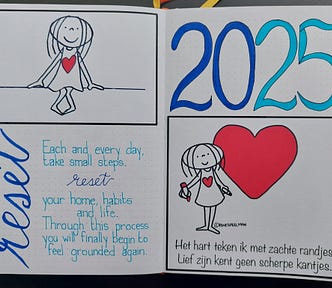 reset
Each and every day,
take small steps.
reset
your home, habits
and life.
Through this process
you will finally begin to
feel grounded again.
2025
Het hart teken ik met zachte randjes
Lief zijn kent geen scherpe kantjes.